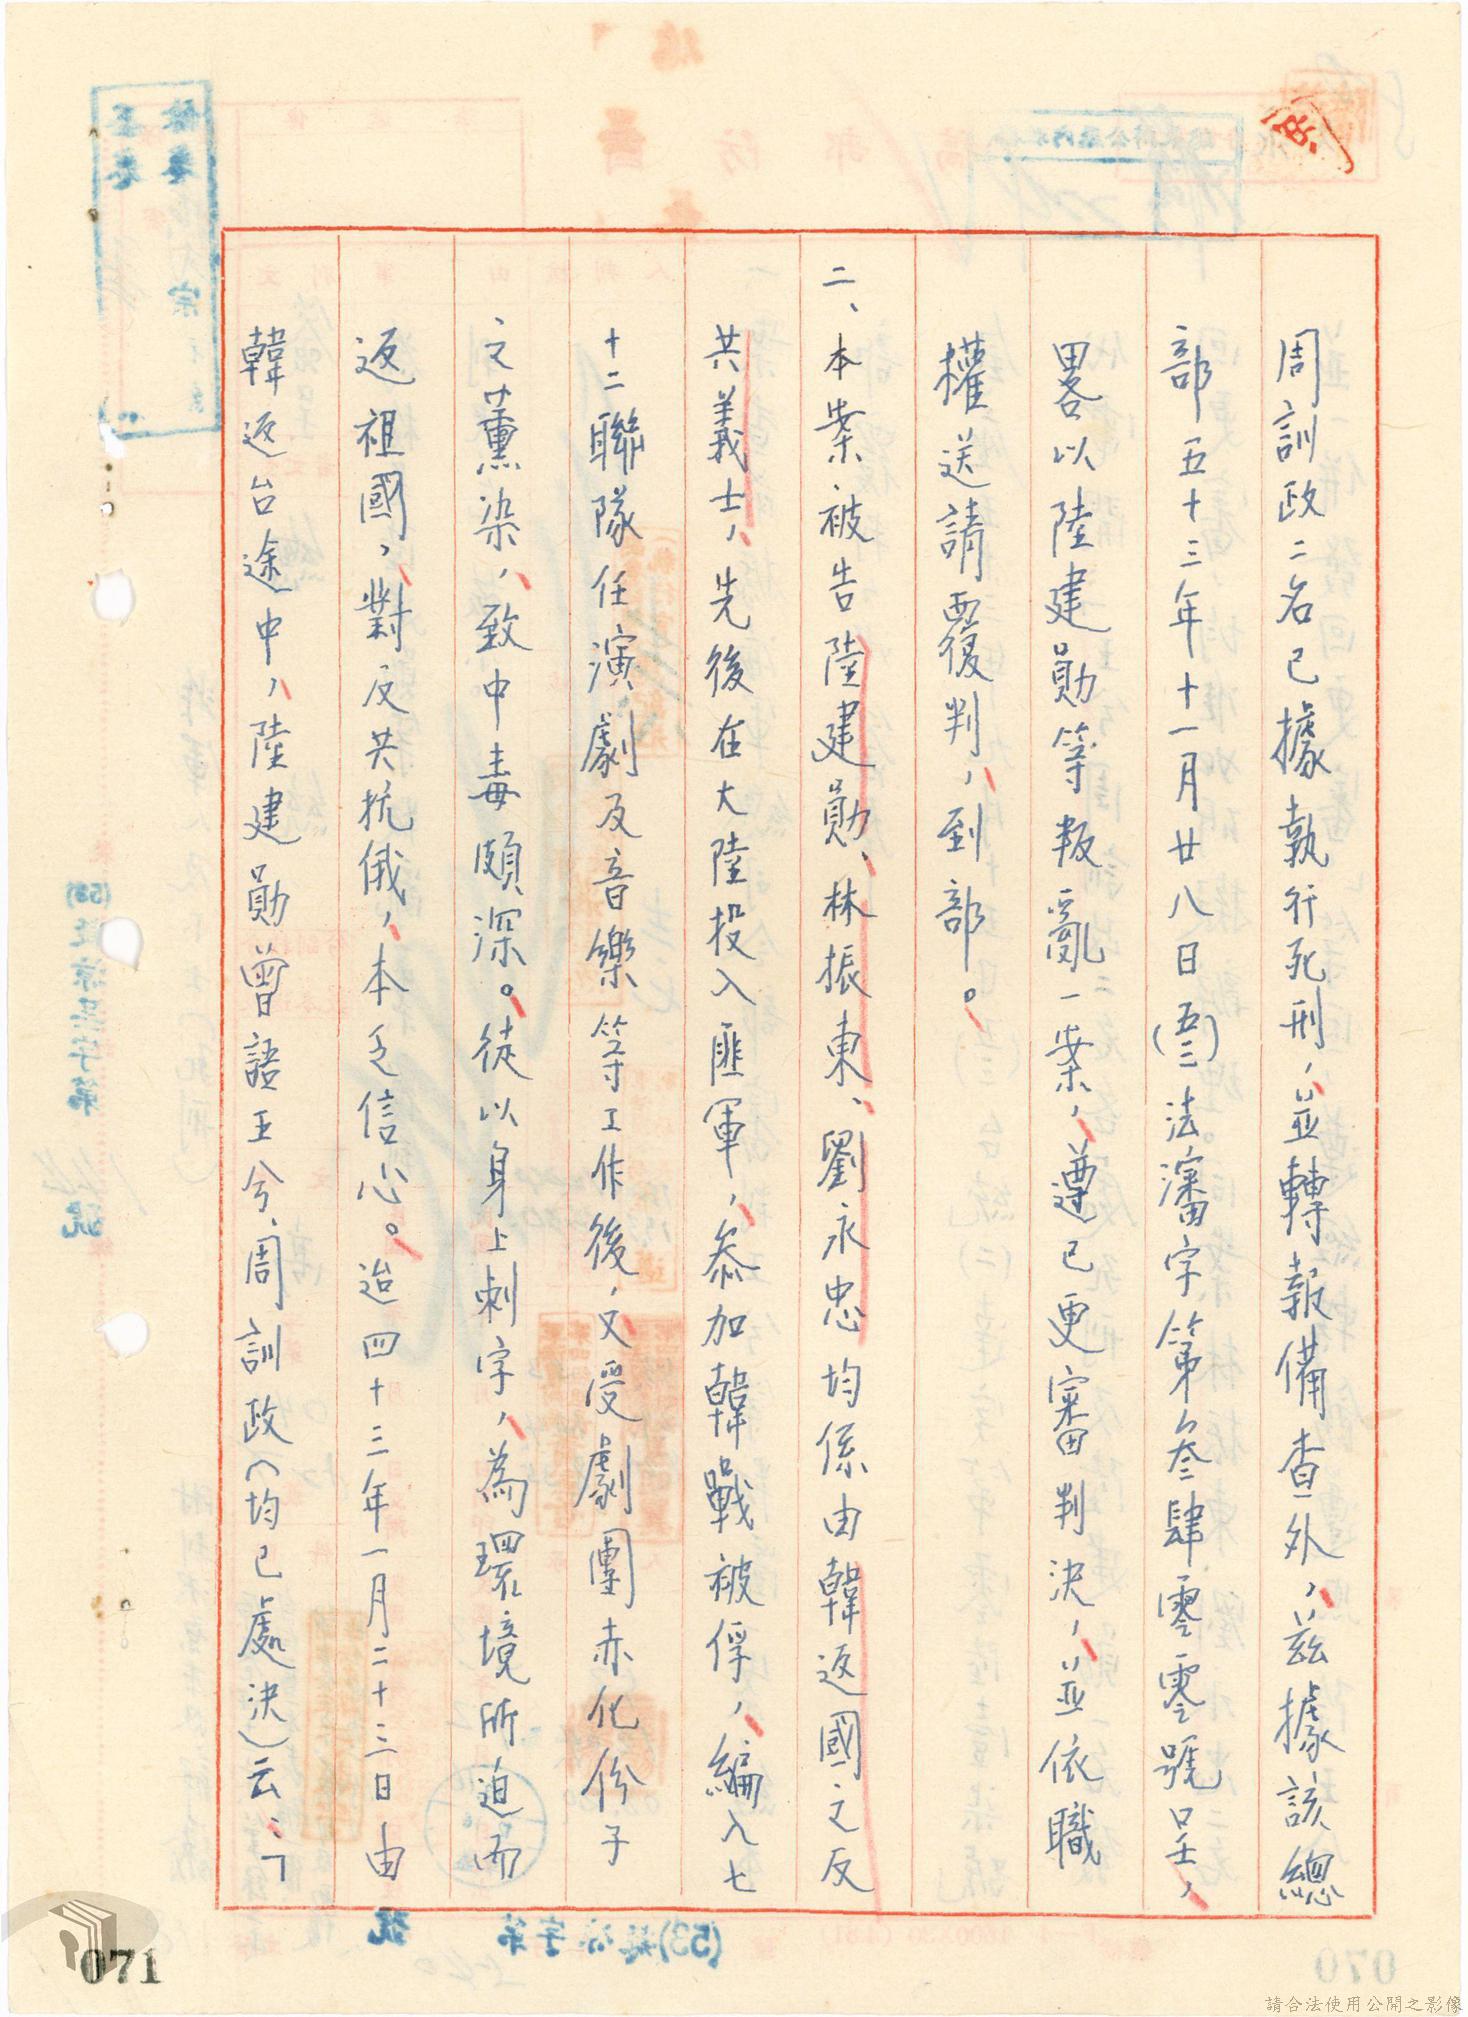 周訓政二名已據執行死刑，並轉報備查外，茲據該總
部五十三年十一月廿八日(五三)法審字第叄肆零零號呈，
畧以陸建勛等叛亂一案，遵已更審判決，並依職
權送請覆判，到部。
二、本案被告陸建勛、林振東、劉永忠均係由韓返國之反
共義士，先後在大陸投入匪軍，叅加韓戰被俘，編入七
十二聯隊任演劇及音樂等工作後，又受劇團赤化份子
之薰染，致中毒頗深。徒以身上刺字，為環境所迫而
返祖國，對反共抗俄，本乏信心。迨四十三年一月二十三日由
韓返台途中，陸建勛曾語王兮、周訓政(均已處決)云：「
071
請合法使用公開之影像